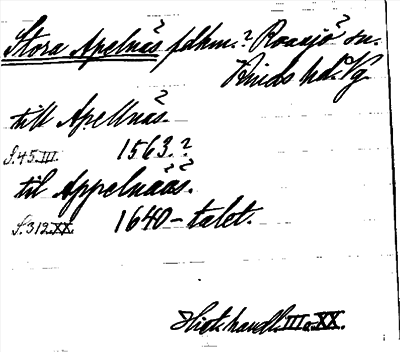 Stora Apelnäs? fdhm.? Roasjö? sn.
Kinds hd. Vg.
till Apellnäs?
S.45.III. 1563.?
til Appelnääs.
S.312.XX. 1640-talet.
Hist. handl. III o. XX.